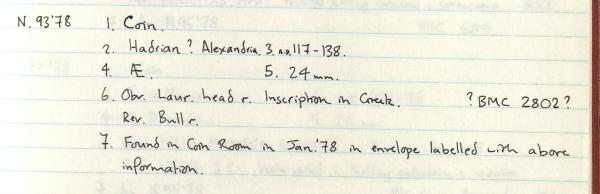 N. 93'78 1. Coin.
2. Hadrian? Alexandria. 3. A.D. 117-138.
4. Æ. 5. 24 mm.
6. Obv. Laur. head r. Inscription in Greek. ? BMC 2802?
Rev. Bull r.
7. Found in Coin Room in Jan. '78 in envelope labelled with above
information.